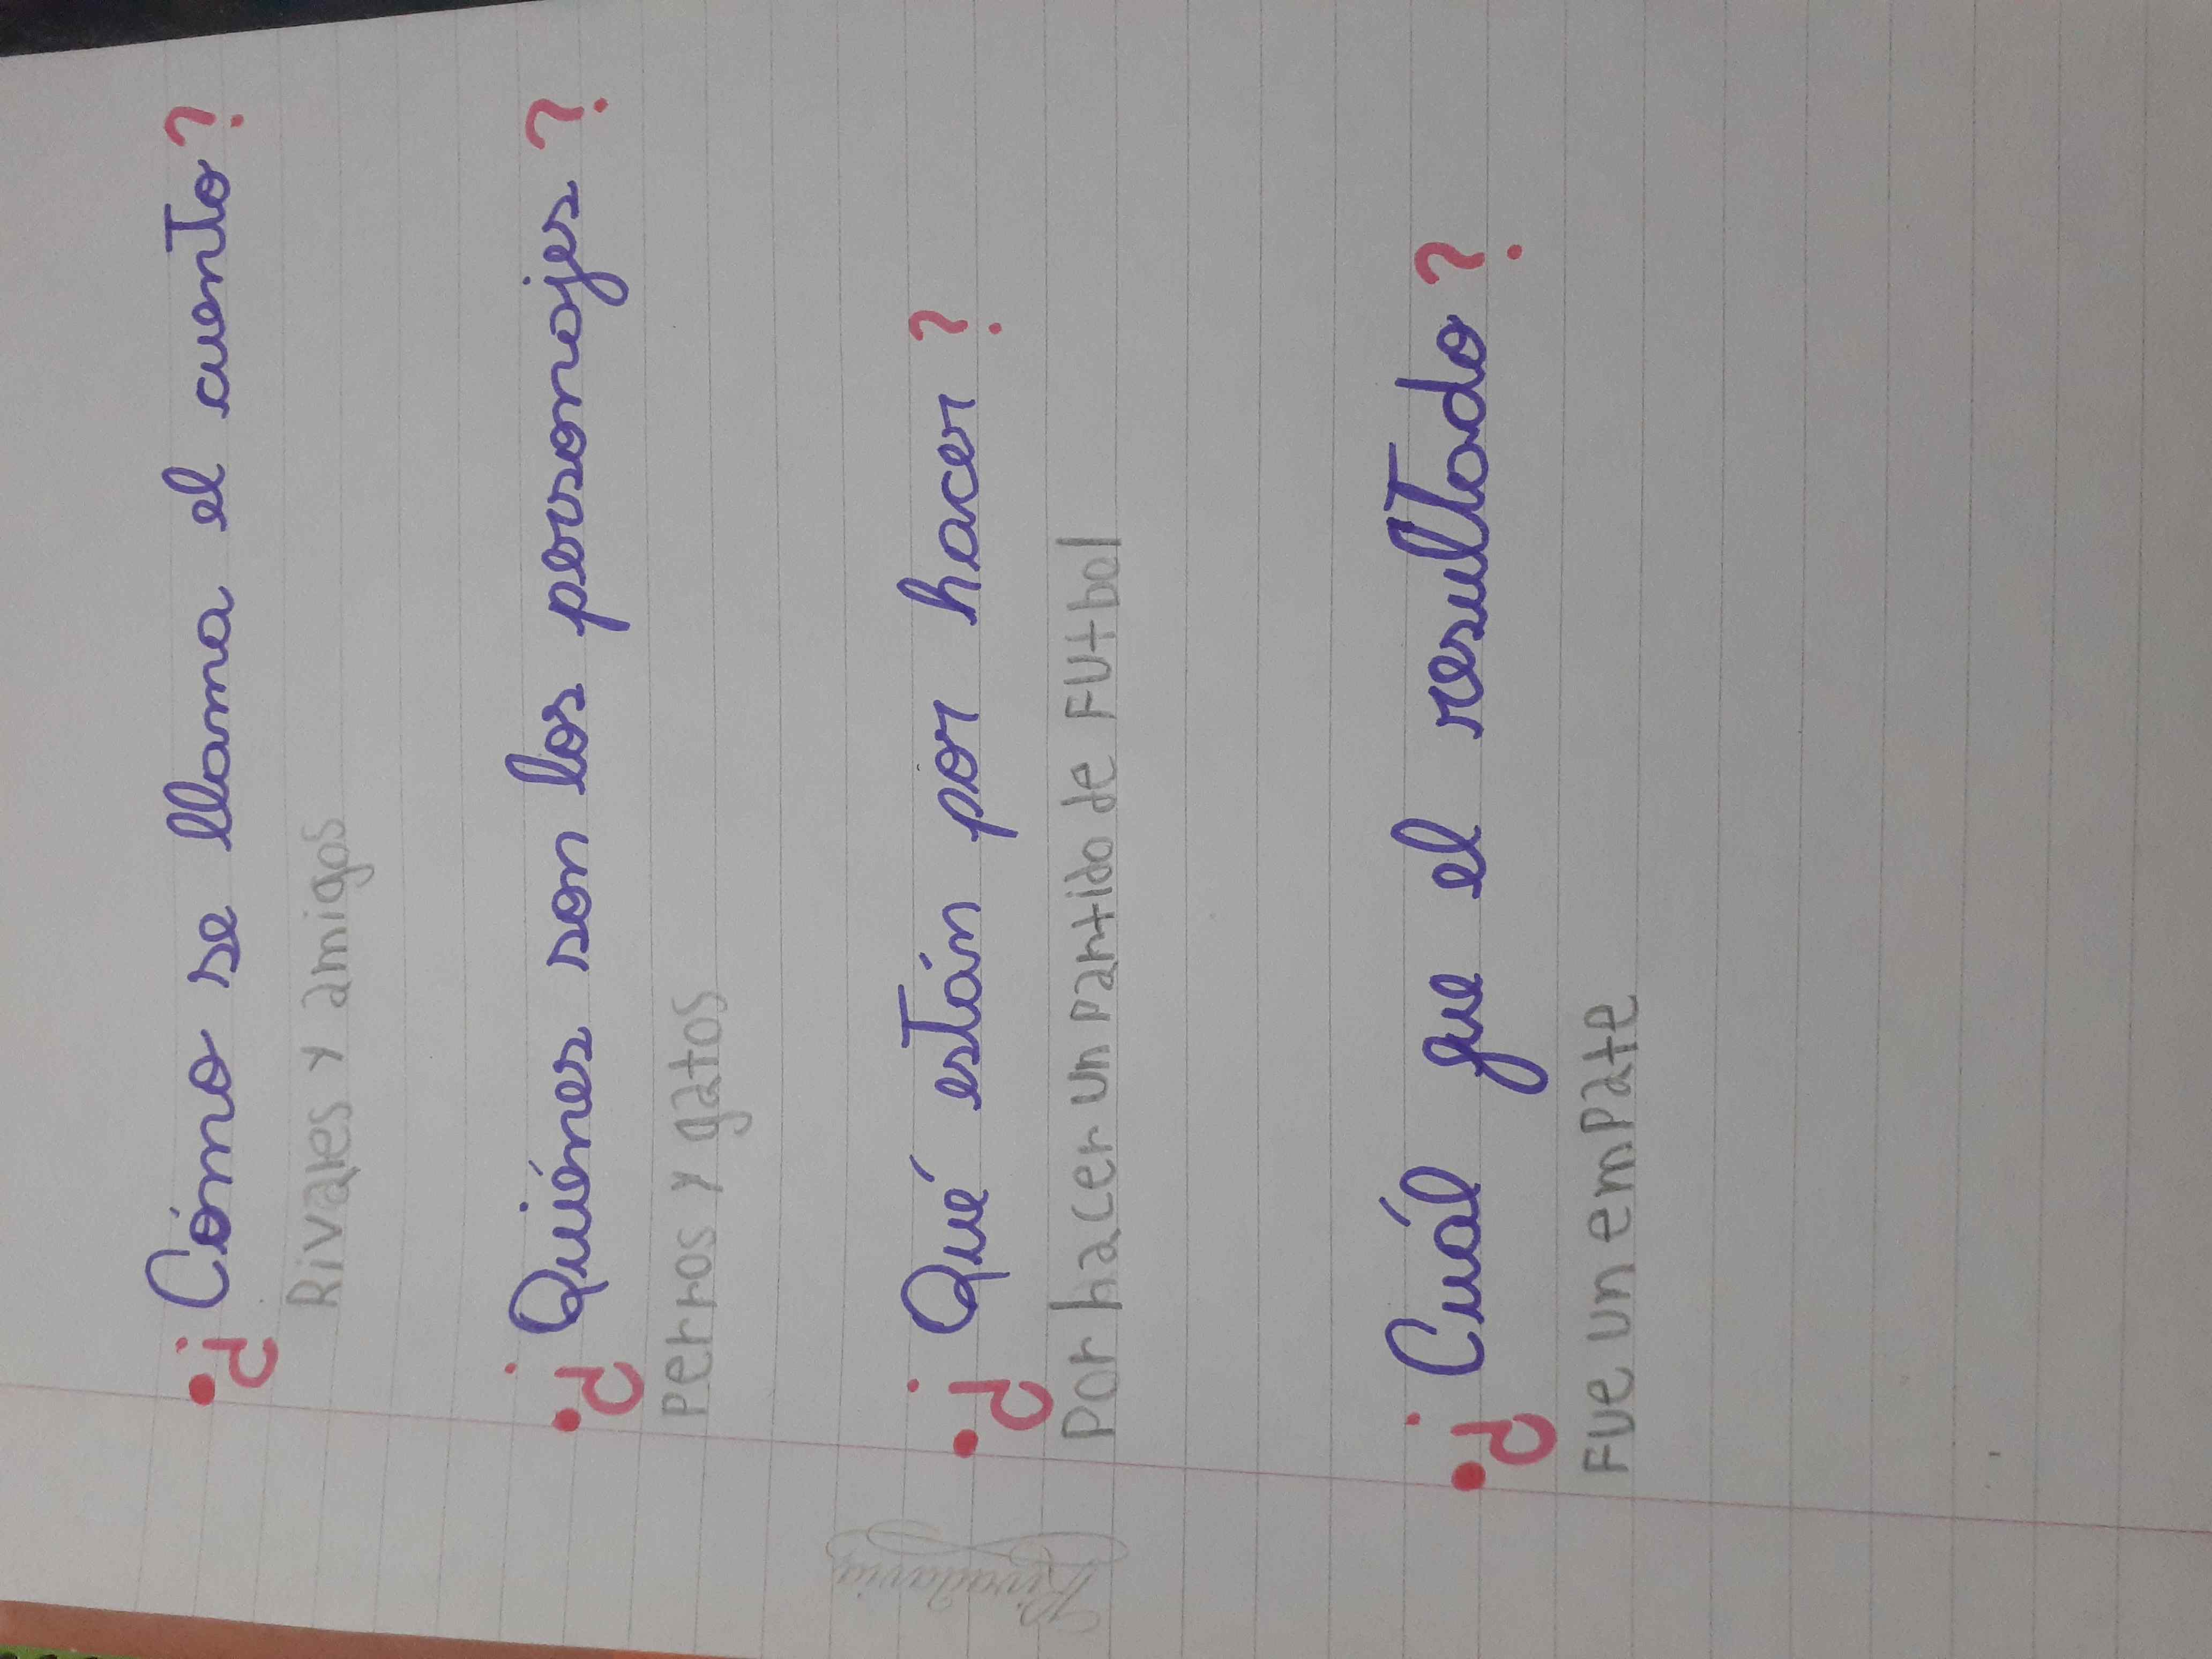 • ¿Cómo se llama el cuento?
Rivales y amigos
• ¿Quiénes son los personajes?
Perros y gatos
• ¿Qué están por hacer?
Por hacer un partido de Futbol
• ¿Cuál fue el resultado?
Fue un empate
Rivadavia